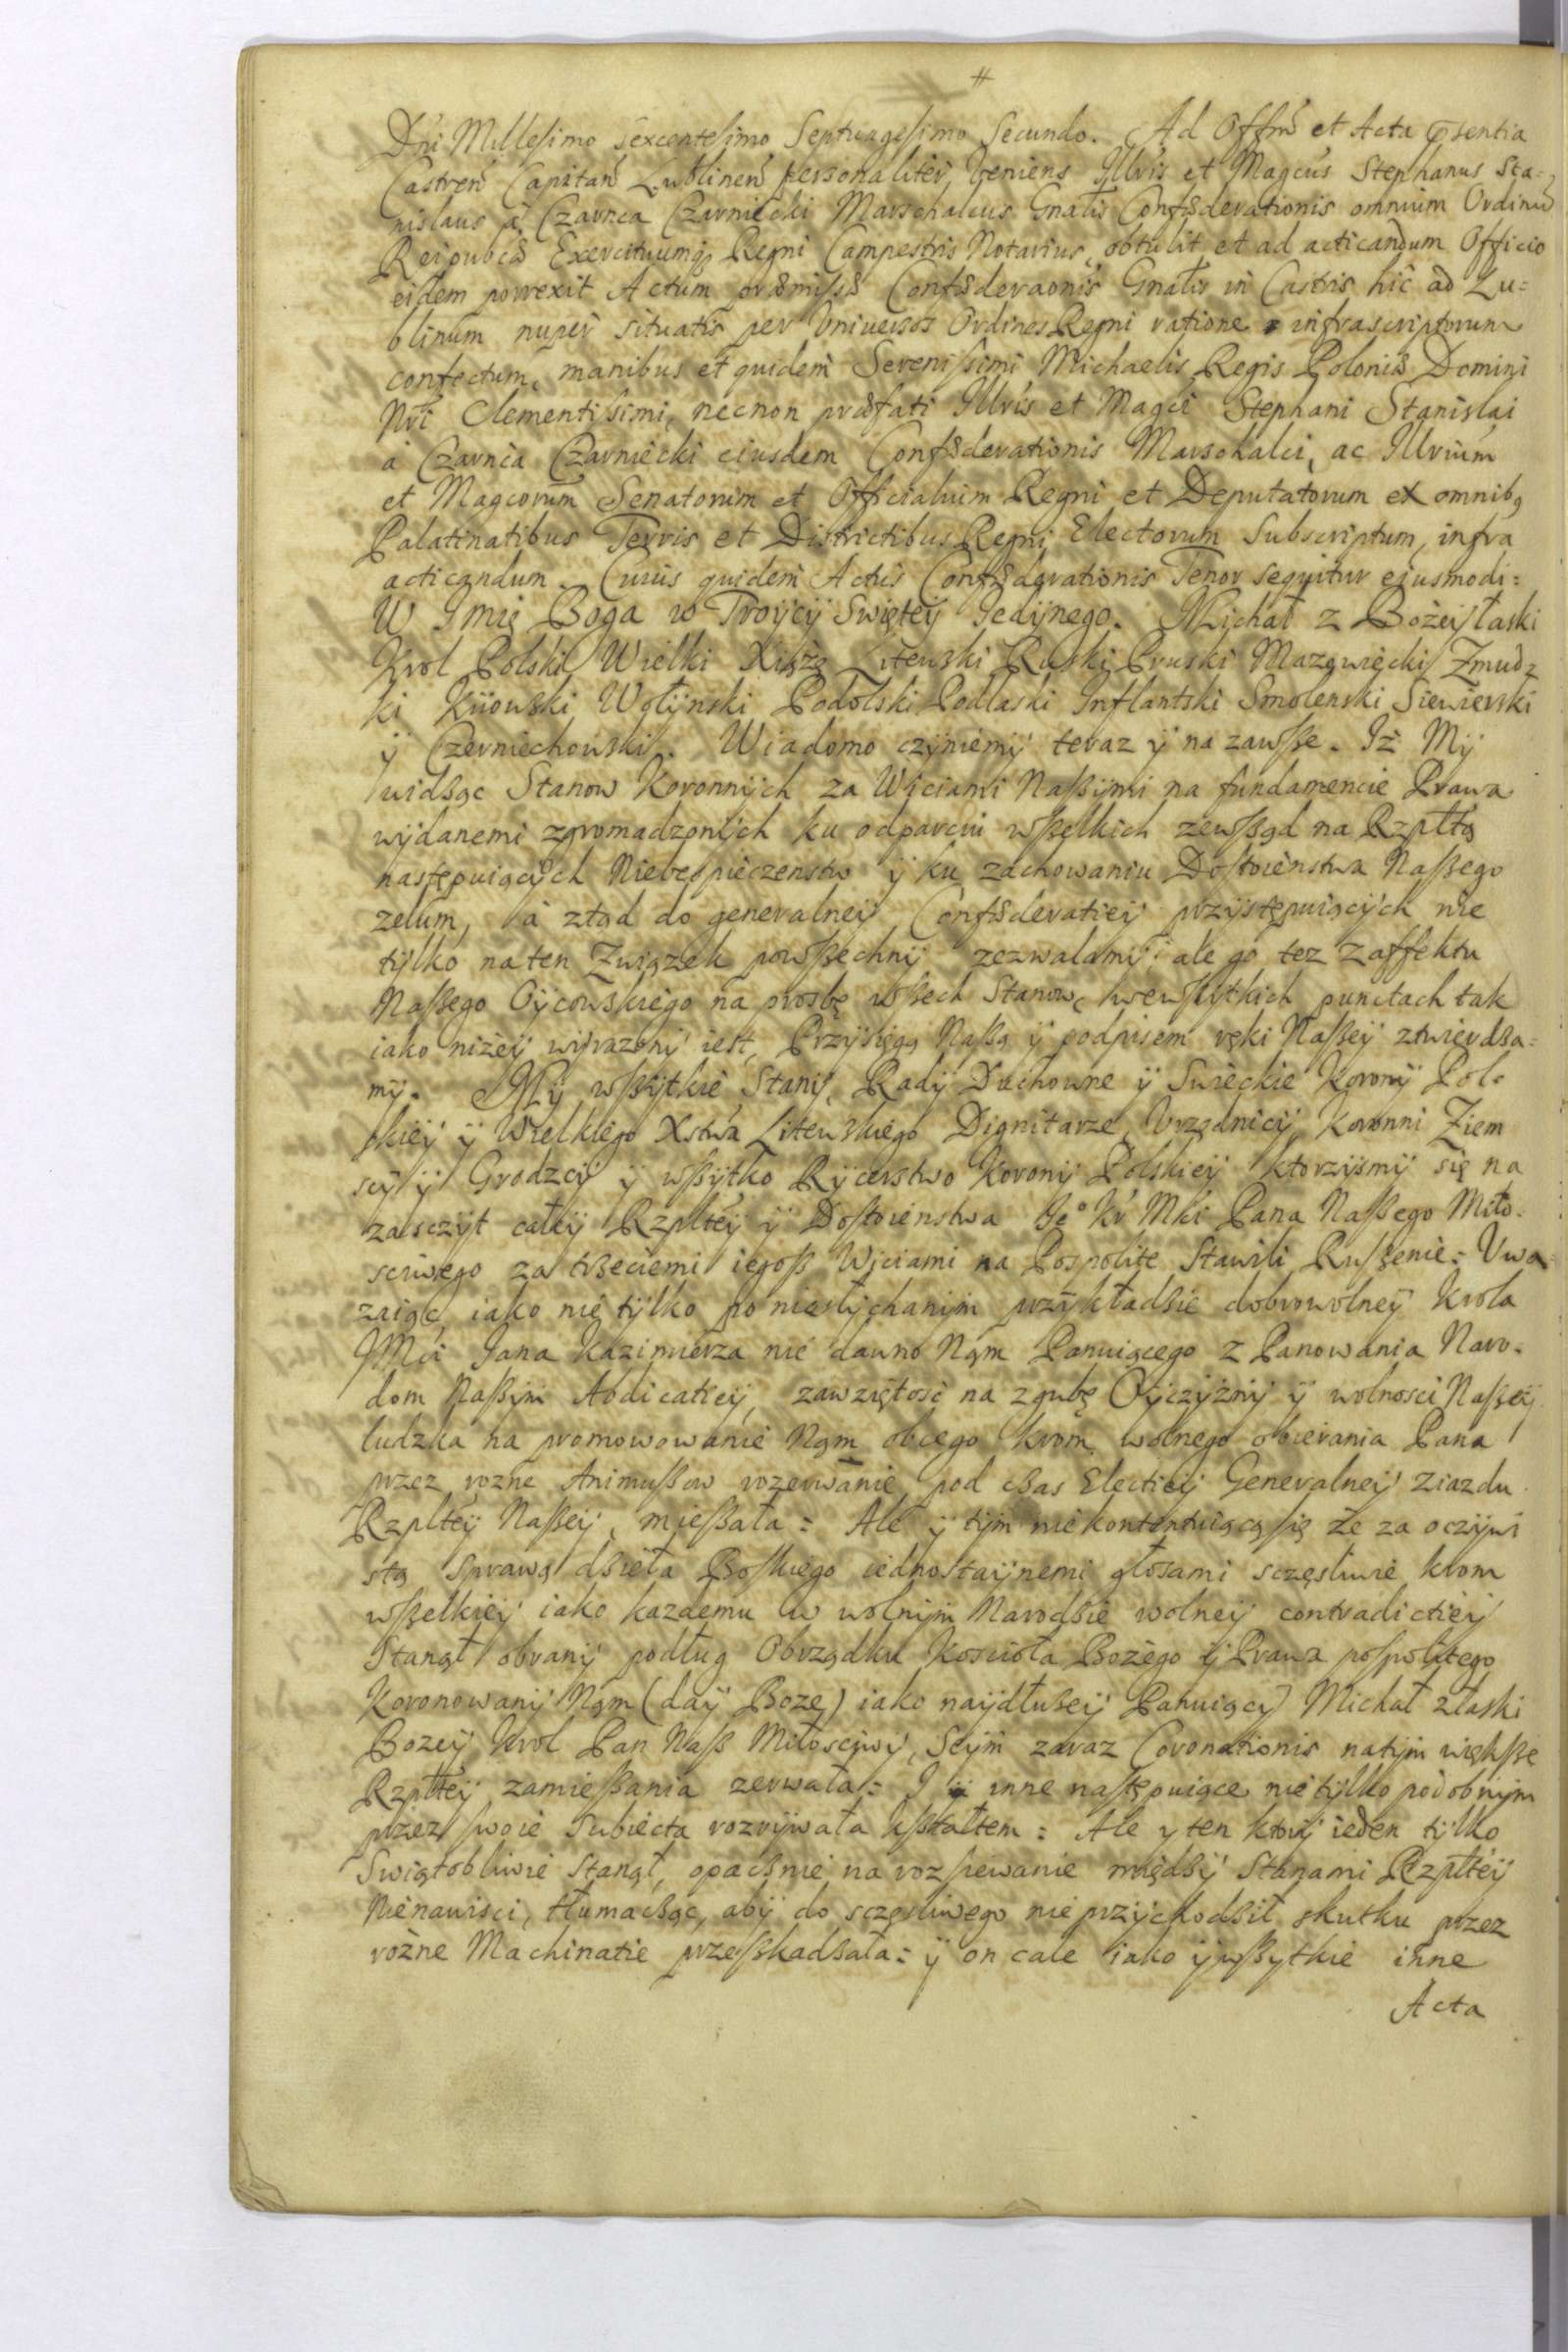 Dni Millesimo sexcentesimo Septuagesimo Secundo. Ad Offm̃ et Acta p̃sentia
Castren̄ Capitan̄ Lublinen̄ personaliter veniens Illris et Magcus Stephanus Sta=
nislaus à Czarnca Czarniecki Marschalcus Gnalis Confæderationis omnium Ordinū
Reipubcæ Exercituumq Regni Campestris Notarius, obtulit et ad acticandum Officio
eidem porrexit Actum præmissæ Confæderaonis Gnalis in Castris hic ad Lu=
blinum nuper situatis per Vniuersos Ordines Regni ratione infrascriptorum
confectum, manibus et quidem Serenissimi Michaelis Regis Poloniæ Domini
Nri Clementissimi, necnon præfati Illris et Magci Stephani Stanislai
à Czarnca Czarniecki eiusdem Confæderationis Marschalci, ac Illrium
et Magcorum Senatorum et Officialium Regni et Deputatorum ex omnibq
Palatinatibus Terris et Districtibus Regni Electorum Subscriptum, infra
acticandum. Cuius quidem Actus Confæderationis Tenor sequitur eiusmodi:
W Imię Boga w Troÿcÿ Swięteÿ Jedÿnego. Michał z Bożeÿ łaski
Krol Polski Wielki Xiążę Litewski Ruski Pruski Mazowięcki Zmudz
ki Kiiowski Wołÿnski Podolski Podlaski Inflantski Smolenski Siewierski
ÿ Czerniechowski. Wiadomo czÿniemÿ teraz ÿ na zawsze. Iż Mÿ
widząc Stanow Koronnÿch za Wiciami Naszÿmi na fundamencie Prawa
wÿdanemi zgromadzonÿch ku odparciu wszelkich zewsząd na Rzpltą
następuiącÿch Niebespieczenstw ÿ ku zachowaniu Dostoienstwa Naszego
zelum, à ztąd do generalneÿ Confæderatieÿ przÿstępuiącÿch nie
tÿlko na ten Związek powszechnÿ zezwalamÿ: ale go tez z affektu
Naszego Oÿcowskiego na prosbę wszech Stanow, we wszÿtkich punctach tak
iako niżeÿ wÿrazonÿ iest, Przÿsięgą Naszą ÿ podpisem ręki Naszeÿ ztwierdza=
mÿ. Mÿ wszÿtkie Stanÿ, Radÿ Duchowne ÿ Swieckie Koronÿ Pol=
skieÿ ÿ Wielkiego Xstwa Litewskiego Dignitarze, Vrzędnicÿ Koronni Ziem
scÿ ÿ Grodzcÿ ÿ wszÿtko Rÿcerstwo Koronÿ Polskieÿ ktorzÿsmÿ się na
zasczÿt całeÿ Rzplteÿ ÿ Dostoienstwa Je° Kr Mci Pana Naszego Miło=
sciwego za trzeciemi iegosz Wiciami na Pospolite Stawili Ruszenie: Vwa
zaiąc, iako nie tÿlko po niesłÿchanÿm przÿkładzie dobrowolneÿ Krola
JMci Jana Kazimierza nie dawno Nąm Panuiącego z Panowania Naro=
dom Naszÿm Abdicatieÿ, zawziętość na zgubę Oÿczÿznÿ ÿ wolnosci Naszeÿ
ludzka na promowowanie Nąm obcego krom wolnego obierania Pana
przez rozne Animuszow rozerwanie, pod czas Electieÿ Generalneÿ Ziazdu
Rzplteÿ Naszeÿ, mieszała: Ale ÿ tÿm nie kontentuiącą się że za oczÿwi
stą Sprawą dzieła Boskiego iednostaÿnemi głosami sczęsliwie krom
wszelkieÿ iako kazdemu w wolnÿm Narodzie wolneÿ contradictieÿ
Stanął obranÿ podług Obrządku Koscioła Bożego ÿ Prawa pospolitego
Koronowanÿ Nąm (daÿ Boze) iako naÿdłuzeÿ Panuiącÿ Michał z łaski
Bozeÿ Krol Pan Nasz Miłosciwÿ, Seÿm zaraz Coronationis na tÿm większe
Rzplteÿ zamieszania zerwała: I inne następuiące nie tÿlko podobnÿm
przez swoie Subiecta rozrÿwała kształtem: Ale y ten ktorÿ ieden tÿlko
Swiątobliwie stanął, opacznie na rozsiewanie międzÿ Stanami Rzplteÿ
Nienawisci, tłumacząc, abÿ do sczęsliwego nie przÿchodził skutku przez
rożne Machinatie przeszkadzała: ÿ on cale iako ÿ wszytkie inne
Acta